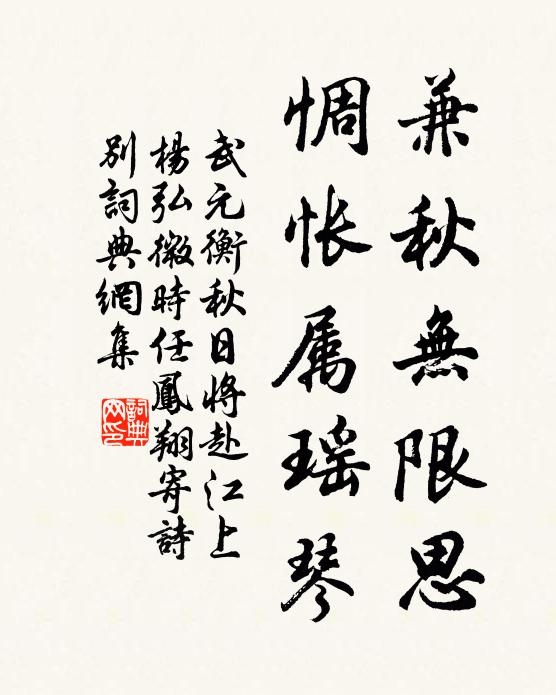 兼秋無限思
惆怅属瑶琴
武元衡秋日将赴江上
楊弘微時任鳳翔寄詩
別詞典網集
詞典網印